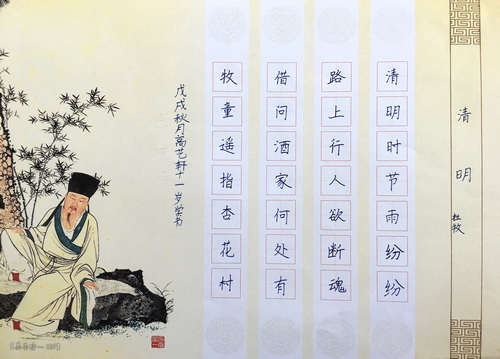 清明
杜牧
清明时节雨纷纷
路上行人欲断魂
借问酒家何处有
牧童遥指杏花村
戊戌秋月高艺轩十一岁书